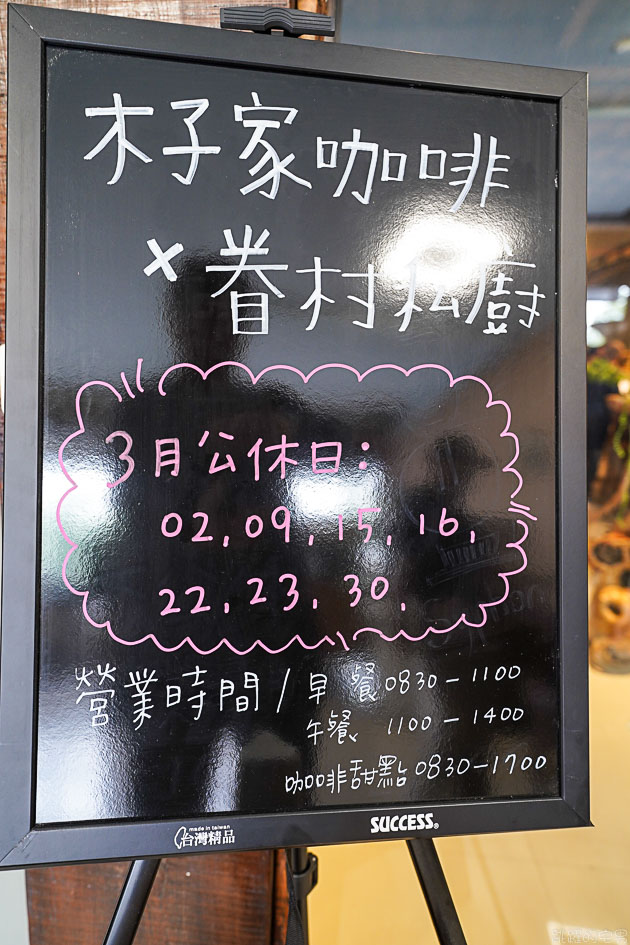 木子家咖啡
×眷村私廚
3月公休日:
02,09,15,16,
22,23,30,
營業時間/早餐0830-1100
午餐 1100-1400
咖啡甜點0830-1700
made in taiwan
台灣精品
SUCCESS®